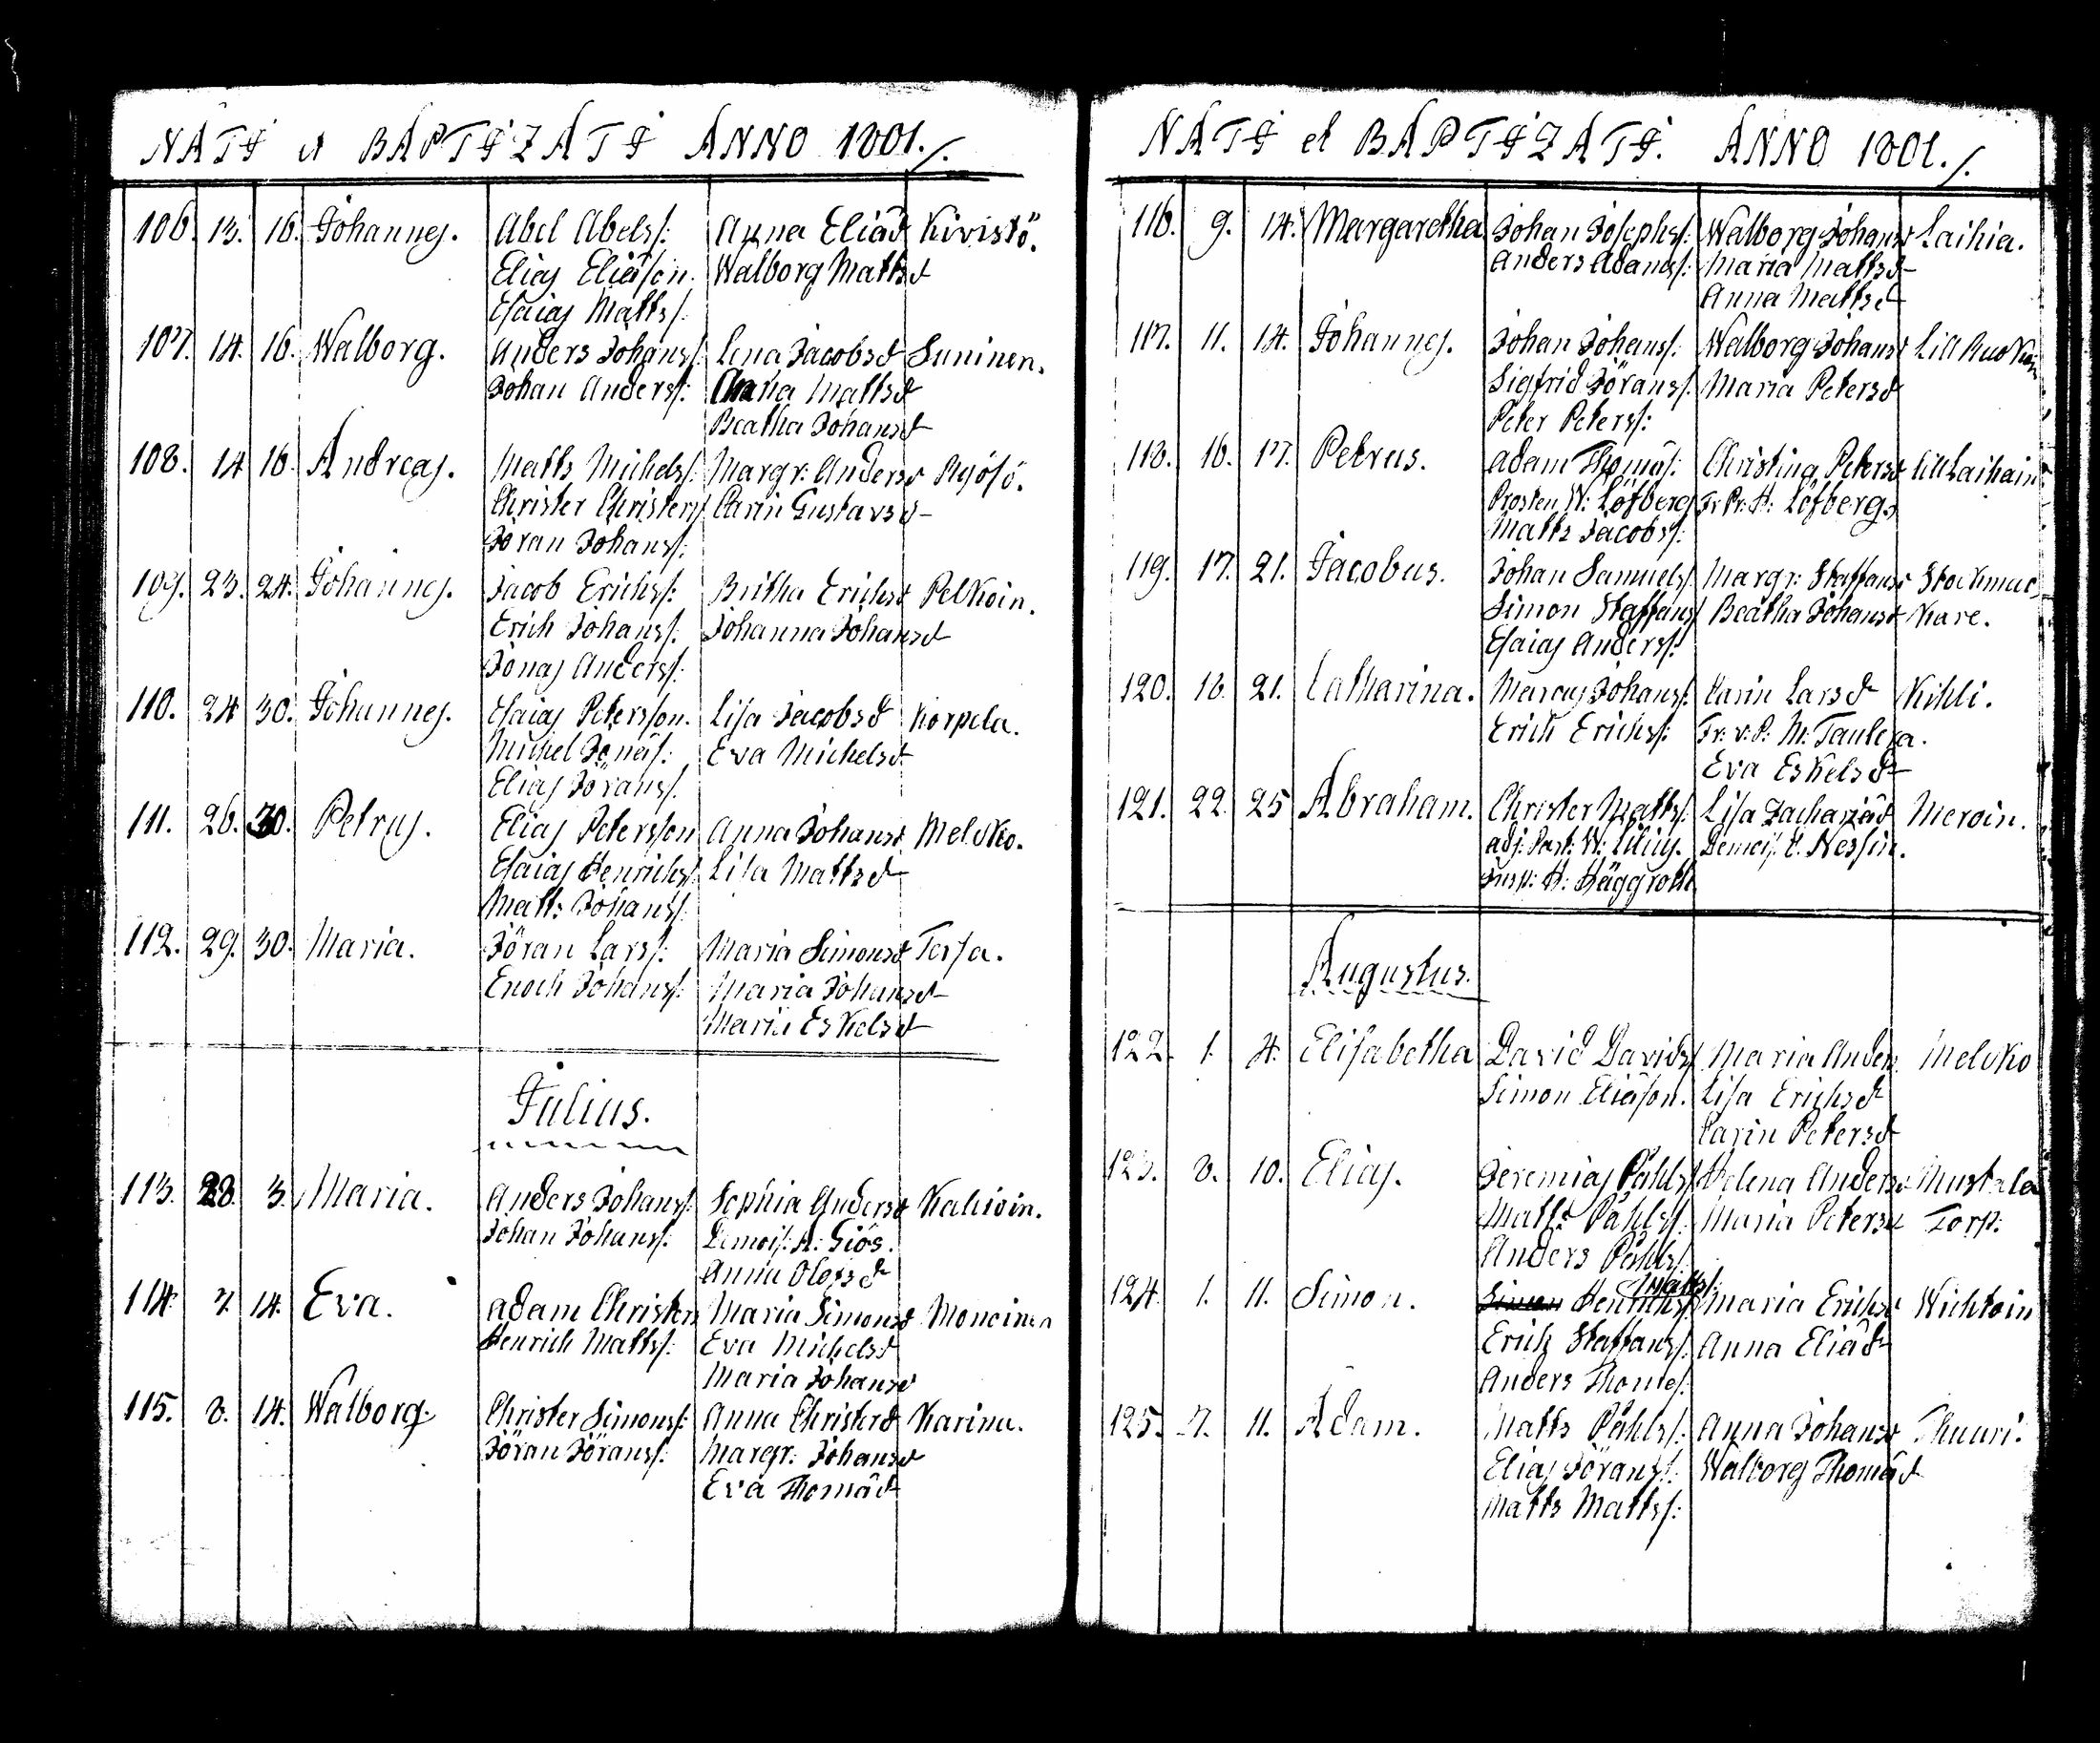 NATI et BAPTIZATI ANNO 1801./.
106. 13. 16. Johannes. Abel Abelss: Anna Eliäd Kivistö.
Elias Eliäson. Walborg Mattsd
Esaias Mattss:
107. 14. 16. Walborg. Anders Johanss: Lena Jacobsd Suninen.
Johan Anderss: Anna Mattsd
Beatha Johansd
108. 14 16. Andreas. Matts Michelss: Margr: Andersd Pyösö.
Christer Christerss Carin Gustavsd
Jöran Johanss:
109. 23. 24. Johannes. Jacob Erichss: Britha Erichsd Pelkoin.
Erich Johanss. Johanna Johansd
Jonas Anderss:
110. 24 30. Johannes. Esaias Petersson. Lisa Jacobsd Korpela.
Michel Jonäs: Eva Michelsd
Elias Jöranss.
111. 26. 30. Petrus. Elias Petersson Anna Johansd Melkko.
Esaias Henrichss Lisa Mattsd
Matts Johanss.
112. 29. 30. Maria. Jöran Larss: Maria Simonsd Tersa.
Enoch Johanss: Maria Johansd
Maria Eskelsd
Julius.
113. 28. 3. Maria. Anders Johanss: Sophia Andersd Kakioin.
Johan Johanss: Demois: A: Giös.
Anna Olofsd
114. 7. 14. Eva. Adam Christers Maria Simonsd Moncinen
Henrich Mattss: Eva Michelsd
Maria Johansd
115. 8. 14. Walborg. Christer Simonss: Anna Christersd Karina.
Jöran Jöranss: Margr: Johansd
Eva Thomäd
NATI et BAPTIZATI. ANNO 1801./.
116. 9. 14. Margaretha Johan Josephss: Walborg Johansd Laihia.
Anders Adamss: Maria Mattsd
Anna Mattsd
117. 11. 14. Johannes. Johan Johanss: Walborg Johansd Lill
Sigfrid Jöranss. Maria Petersd
Peter Peterss:
118. 16. 17. Petrus. Adam Thomäs: Christina Petersd Lill Laihain
Prosten W: Löfberg Fr. Pr: H: Löfberg.
Matts Jacobss:
119. 17. 21. Jacobus. Johan Samuelss. Margr: Staffansd Stockmac
Simon Staffanss Beatha Johansd Kare.
Esaias Anderss:
120. 18. 21. Catharina. Marcus Johanss: Carin Larsd Kihli.
Erich Erichss: Fr: v: P: M: Taulera.
Eva Eskelsd
121. 22. 25 Abraham. Christer Mattss. Lisa Zachariäd Meroin.
adj: Past: W: Lilius. Demois. C. Nessin.
Insp: H: Häggroth
Augustus.
122. 1. 4. Elisabetha David Davidss Maria Anders Melkko
Simon Eliäson. Lisa Erichsd
Carin Petersd
123. 8. 10. Elias. Jeremias Påhlss Helena Andersd Mustala
Matts Påhlss: Maria Petersd Torp.
Anders Påhlss.
Mattss:
124. 1. 11. Simon. Simon Henrichss. Maria Erichsd Wichtoin
Erich Staffanss. Anna Eliäd
Anders Thomäs.
125. 7. 11. Adam. Matts Påhlss: Anna Johansd Thuuri.
Elias Jöranss: Walborg Thomäd
Matts Mattss: